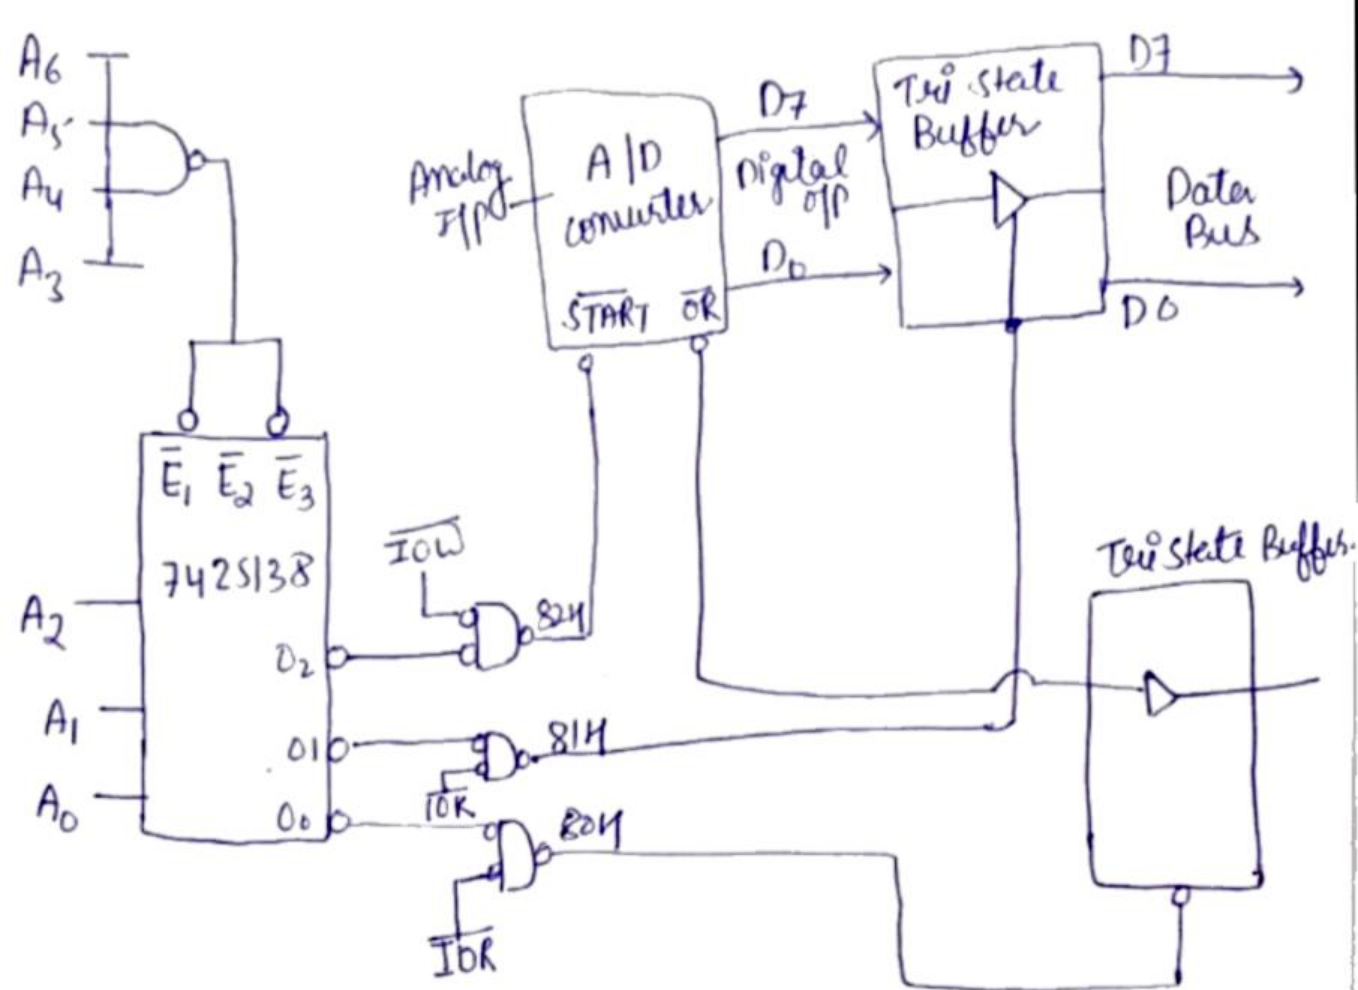 A6
A5
A4
A3
Analog
I/P
A/D
converter
S̅T̅A̅R̅T̅ O̅R̅
D7
Digital
O/P
D0
Tri State
Buffer
D7
Data
Bus
D0
E̅1 E̅2 E̅3
742S138
A2
A1
A0
O2
O1
O0
I̅O̅W̅
82H
81H
I̅O̅R̅
80H
I̅O̅R̅
Tri State Buffer.